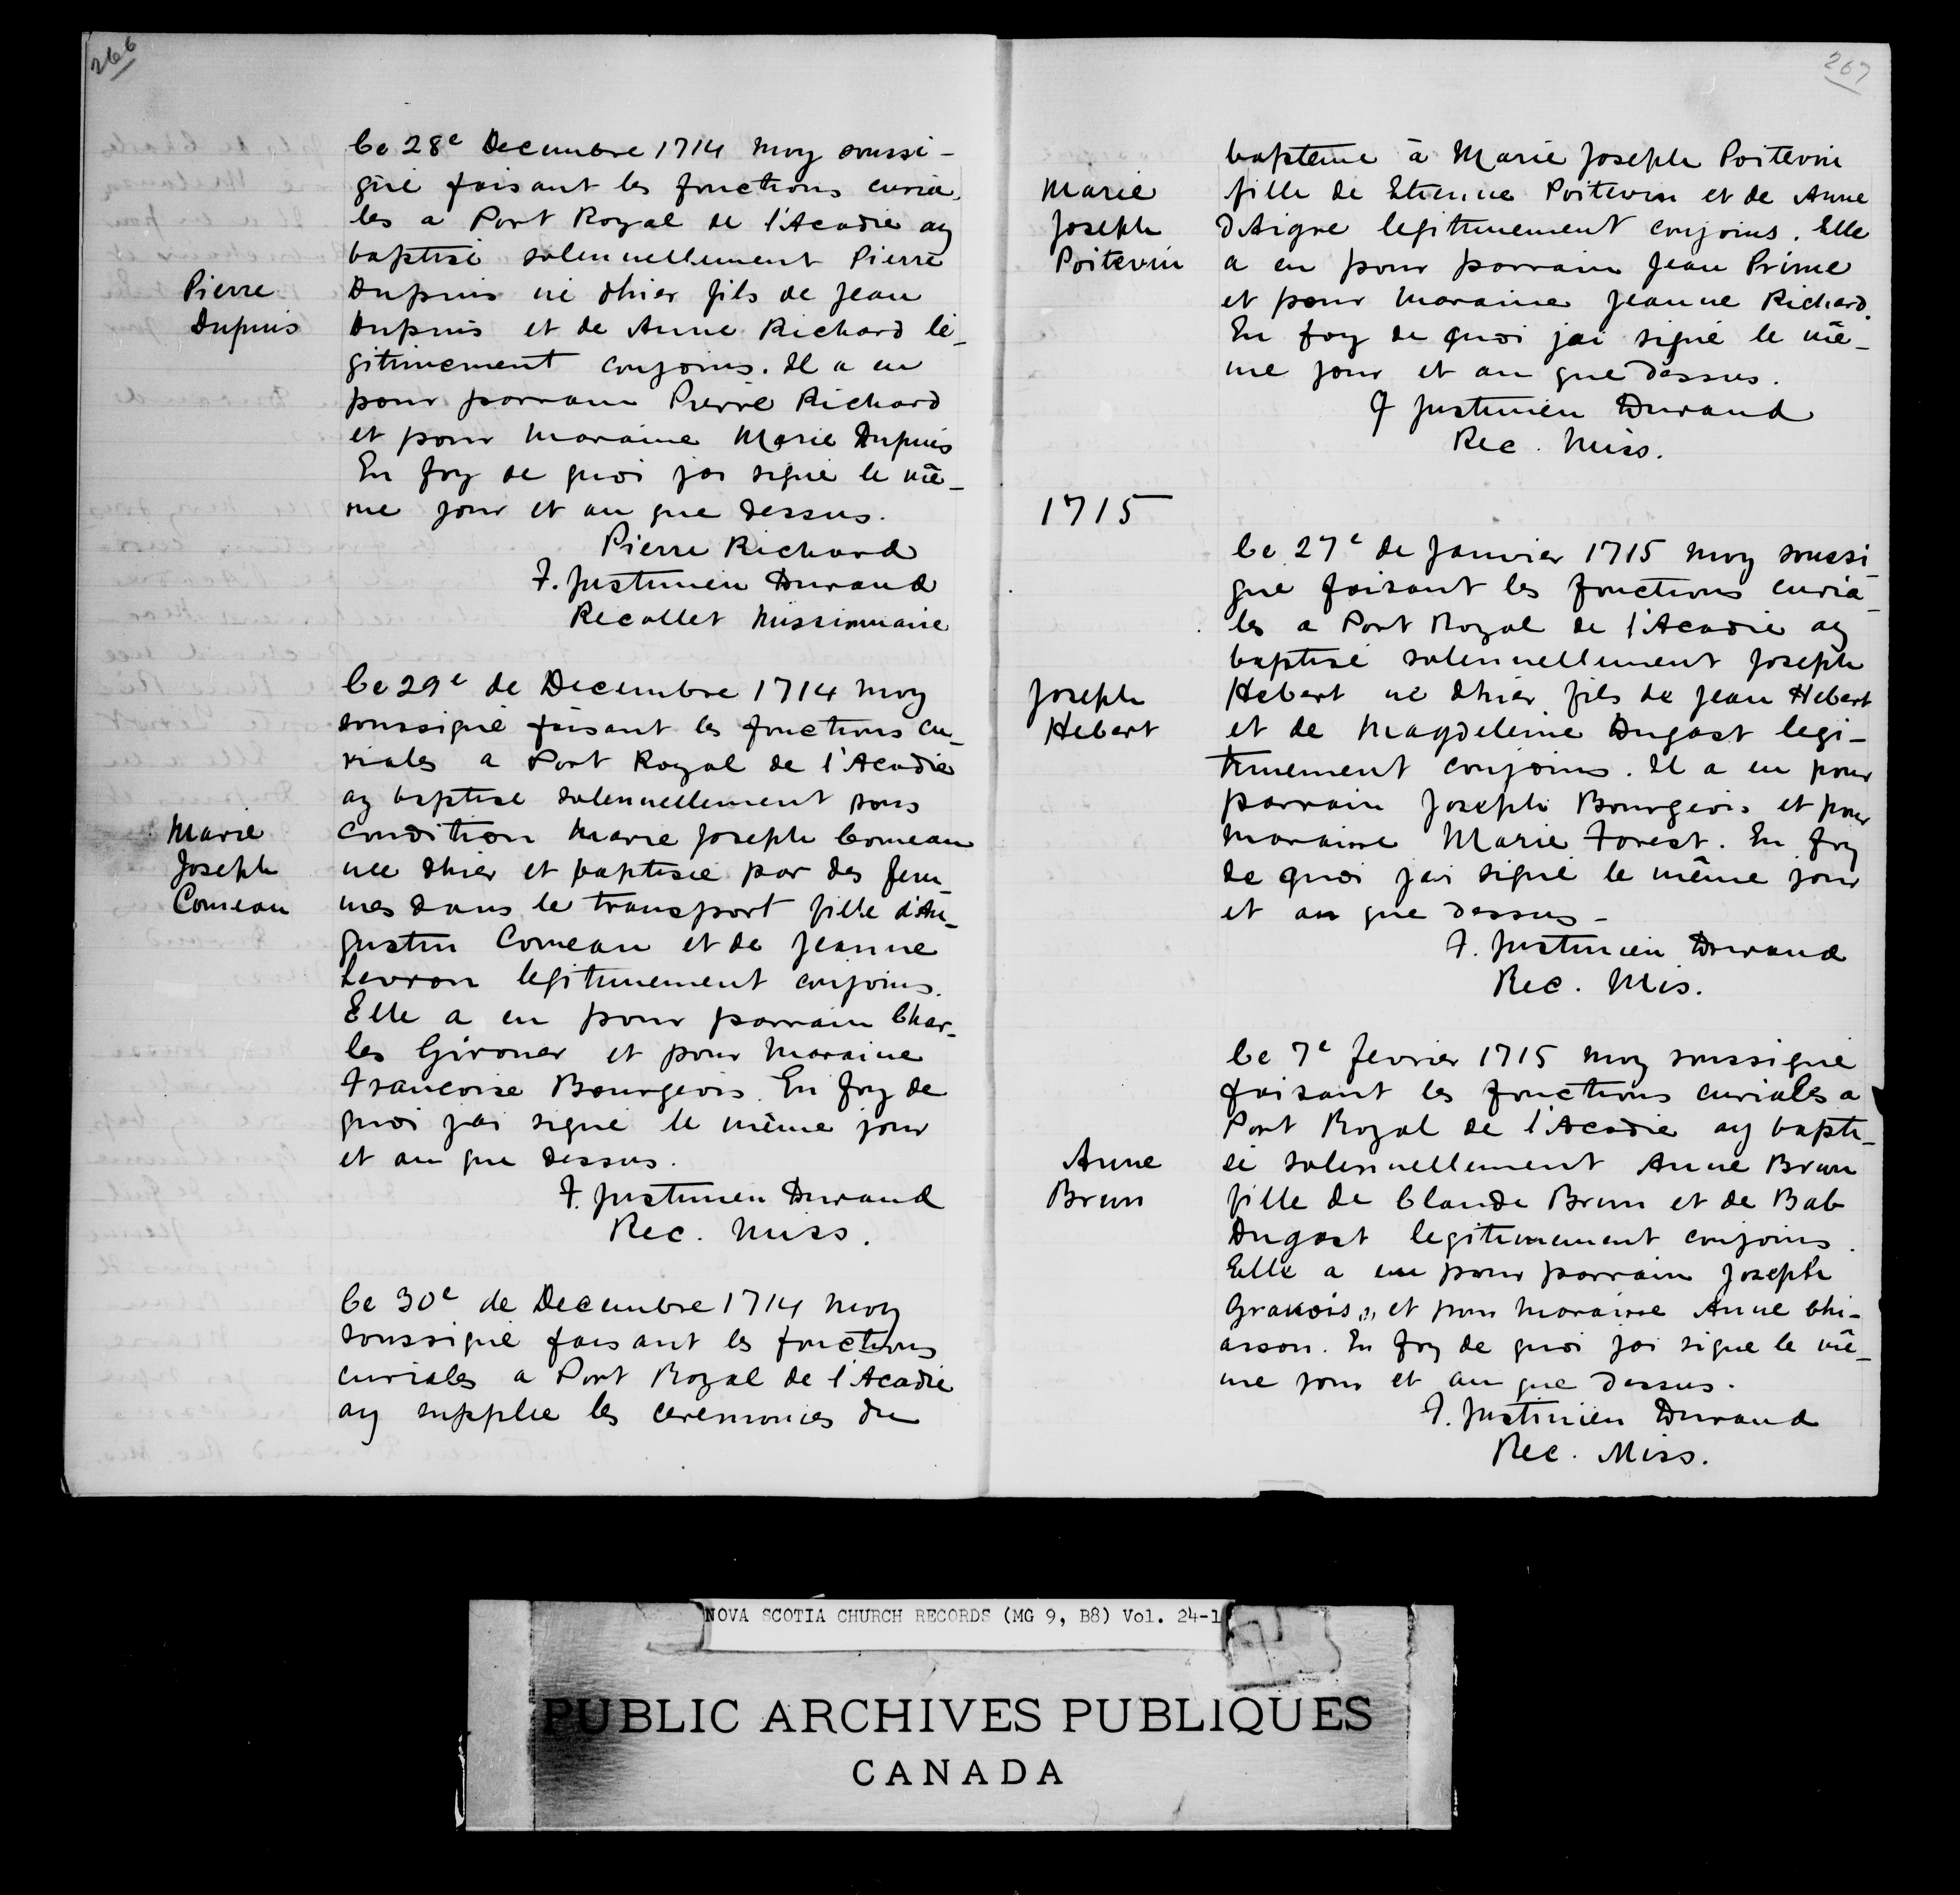 266
Le 28e Decembre 1714 moy soussi-
gné faisant les fonctions curia-
les a Port Royal de l'Acadie ay
baptisé solennellement Pierre
Pierre
Dupuis
Dupuis né d'hier fils de Jean
Dupuis et de Anne Richard lé-
gitimement conjoins. Il a eu
pour parrain Pierre Richard
et pour maraine Marie Dupuis
En foy de quoi jai signé le mê-
me jour et an que dessus.
Pierre Richard
F. Justinien Durand
Recollet Missionnaire
Le 29e de Decembre 1714 moy
soussigné faisant les fonctions cu-
riales a Port Royal de l'Acadie
ay baptisé solennellement sous
Marie
Joseph
Comeau
condition Marie Joseph Comeau
née d'hier et baptisée par des fem-
mes dans le transport fille d'Au-
gustin Comeau et de Jeanne
Levron legitimement conjoins.
Elle a eu pour parrain Char-
les Girouer et pour maraine
Francoise Bourgeois. En foy de
quoi jai signé le même jour
et an que dessus.
F. Justinien Durand
Rec. Miss.
Le 30e de Decembre 1714 moy
soussigné faisant les fonctions
curiales a Port Royal de l'Acadie
ay supplée les ceremonies du
267
Marie
Joseph
Poitevin
baptême à Marie Joseph Poitevin
fille de Etienne Poitevin et de Anne
dAigre legitimement conjoins. Elle
a eu pour parrain Jean Prime
et pour maraine Jeanne Richard.
En foy de quoi jai signé le mê-
me jour et an que dessus.
F Justinien Durand
Rec. Miss.
1715
Le 27e de Janvier 1715 moy soussi-
gné faisant les fonctions curia-
les a Port Royal de l'Acadie ay
baptisé solennellement Joseph
Joseph
Hebert
Hebert né d'hier fils de Jean Hebert
et de Magdeleine Dugast legi-
timement conjoins. Il a eu pour
parrain Joseph Bourgeois et pour
maraine Marie Forest. En foy
de quoi jai signé le même jour
et an que dessus-
F. Justinien Durand
Rec. Mis.
Le 7e fevrier 1715 moy soussigné
faisant les fonctions curiales a
Port Royal de l'Acadie ay bapti-
Anne
Brun
sé solennellement Anne Brun
fille de Claude Brun et de Bab
Dugast legitimement conjoins.
Elle a eu pour parrain Joseph
et pour maraine Anne Chi-
asson. En foy de quoi jai signé le mê-
me jour et an que dessus.
F. Justinien Durand
Rec. Miss.
NOVA SCOTIA CHURCH RECORDS (MG 9, B8) Vol. 24-1
PUBLIC ARCHIVES PUBLIQUES
CANADA